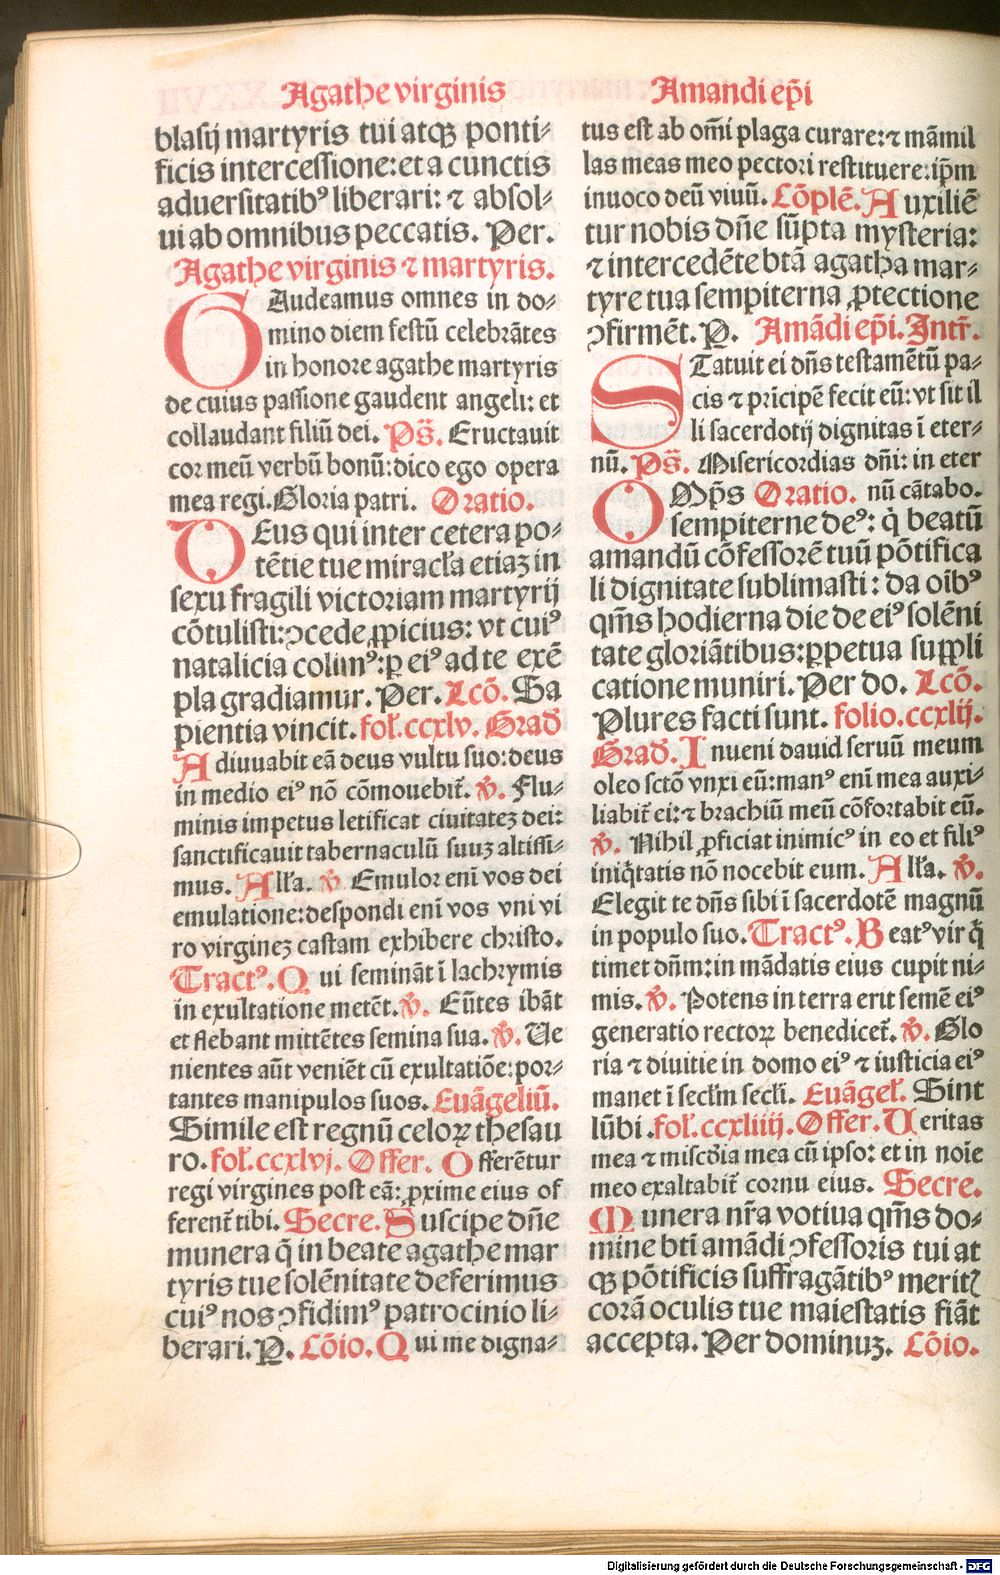 Agathe virginis
blasij martyris tui atqꝫ ponti-
ficis intercessione: et a cunctis
aduersitatibꝰ liberari: ⁊ absol-
ui ab omnibus peccatis. Per.
Agathe virginis ⁊ martyris.
GAudeamus omnes in do-
mino diem festū celebrātes
in honore agathe martyris
de cuius passione gaudent angeli: et
collaudant filiū dei. Ps̄. Eructauit
cor meū verbū bonū: dico ego opera
mea regi. Gloria patri. Oratio.
DEus qui inter cetera po-
tētie tue miracła etiaꝫ in
sexu fragili victoriam martyrij
cōtulisti: ↄcede ꝓpicius: vt cuiꝰ
natalicia colimꝰ: ꝑ eiꝰ ad te exē
pla gradiamur. Per. Lcō. Sa
pientia vincit. fol. ccxlv. Grad̄
Adiuuabit eā deus vultu suo: deus
in medio eiꝰ nō cōmouebit̄. ℣. Flu-
minis impetus letificat ciuitateꝫ dei:
sanctificauit tabernaculū suuꝫ altissi-
mus. Alła. ℣. Emulor eni̅ vos dei
emulatione: despondi eni̅ vos vni vi
ro virgineꝫ castam exhibere christo.
Tractꝰ. Qui semināt i̅ lachrymis
in exultatione metēt. ℣. Eūtes ibāt
et flebant mittētes semina sua. ℣. Ue
nientes aūt veniēt cū exultatiōe: por-
tantes manipulos suos. Euāgeliū.
Simile est regnū celoꝝ thesau
ro. fol. ccxlvj. Offer. Offerētur
regi virgines post eā: ꝓxime eius of
ferent̄ tibi. Secre. Suscipe dn̄e
munera q̄ in beate agathe mar
tyris tue solēnitate deferimus
cuiꝰ nos ↄfidimꝰ patrocinio li-
berari. P. Cōio. Qui me digna-
Amandi ep̄i
tus est ab om̄i plaga curare: ⁊ māmil
las meas meo pectori restituere: ip̄m
inuoco deū viuū. Cōplē. Auxiliē
tur nobis dn̄e sūpta mysteria:
⁊ intercedēte btā agatha mar-
tyre tua sempiterna ꝓtectione
ↄfirmēt. P. Amādi ep̄i. Intr̄.
STatuit ei dn̄s testamētū pa-
cis ⁊ pri̅cipē fecit eū: vt sit il
li sacerdotij dignitas i̅ eter-
nū. Ps̄. Misericordias dn̄i: in eter
OMp̄s Oratio. nū cātabo.
sempiterne deꝰ: q̇ beatū
amandū cōfessorē tuū pōtifica
li dignitate sublimasti: da oībꝰ
qm̄s hodierna die de eiꝰ solēni
tate gloriātibus: ꝑpetua suꝓpli
catione muniri. Per do. Lcō.
Plures facti sunt. folio. ccxlij.
Grad̄. Inueni dauid seruū meum
oleo sctō vnxi eū: manꝰ eni̅ mea auxi-
liabit̄ ei: ⁊ brachiū meū cōfortabit eū.
℣. Nihil ꝓficiat inimicꝰ in eo et filiꝰ
iniq̇tatis nō nocebit eum. Alła. ℣.
Elegit te dn̄s sibi i̅ sacerdotē magnū
in populo suo. Tractꝰ. Beatꝰ vir q̇
timet dn̄m: in mādatis eius cupit ni-
mis. ℣. Potens in terra erit semē eiꝰ
generatio rectoꝝ benedicet̄. ℣. Glo
ria ⁊ diuitie in domo eiꝰ ⁊ iusticia eiꝰ
manet i̅ secłm secłi. Euāgeł. Sint
lūbi. fol. ccxliiij. Offer. Ueritas
mea ⁊ miscd̄ia mea cū ipso: et in noīe
meo exaltabit̄ cornu eius. Secre.
Munera nr̄a votiua qm̄s do-
mine bti̅ amādi ↄfessoris tui at
qꝫ pōtificis suffragātibꝰ meritꝭ
corā oculis tue maiestatis fiāt
accepta. Per dominuꝫ. Cōio.
Digitalisierung gefördert durch die Deutsche Forschungsgemeinschaft - DFG